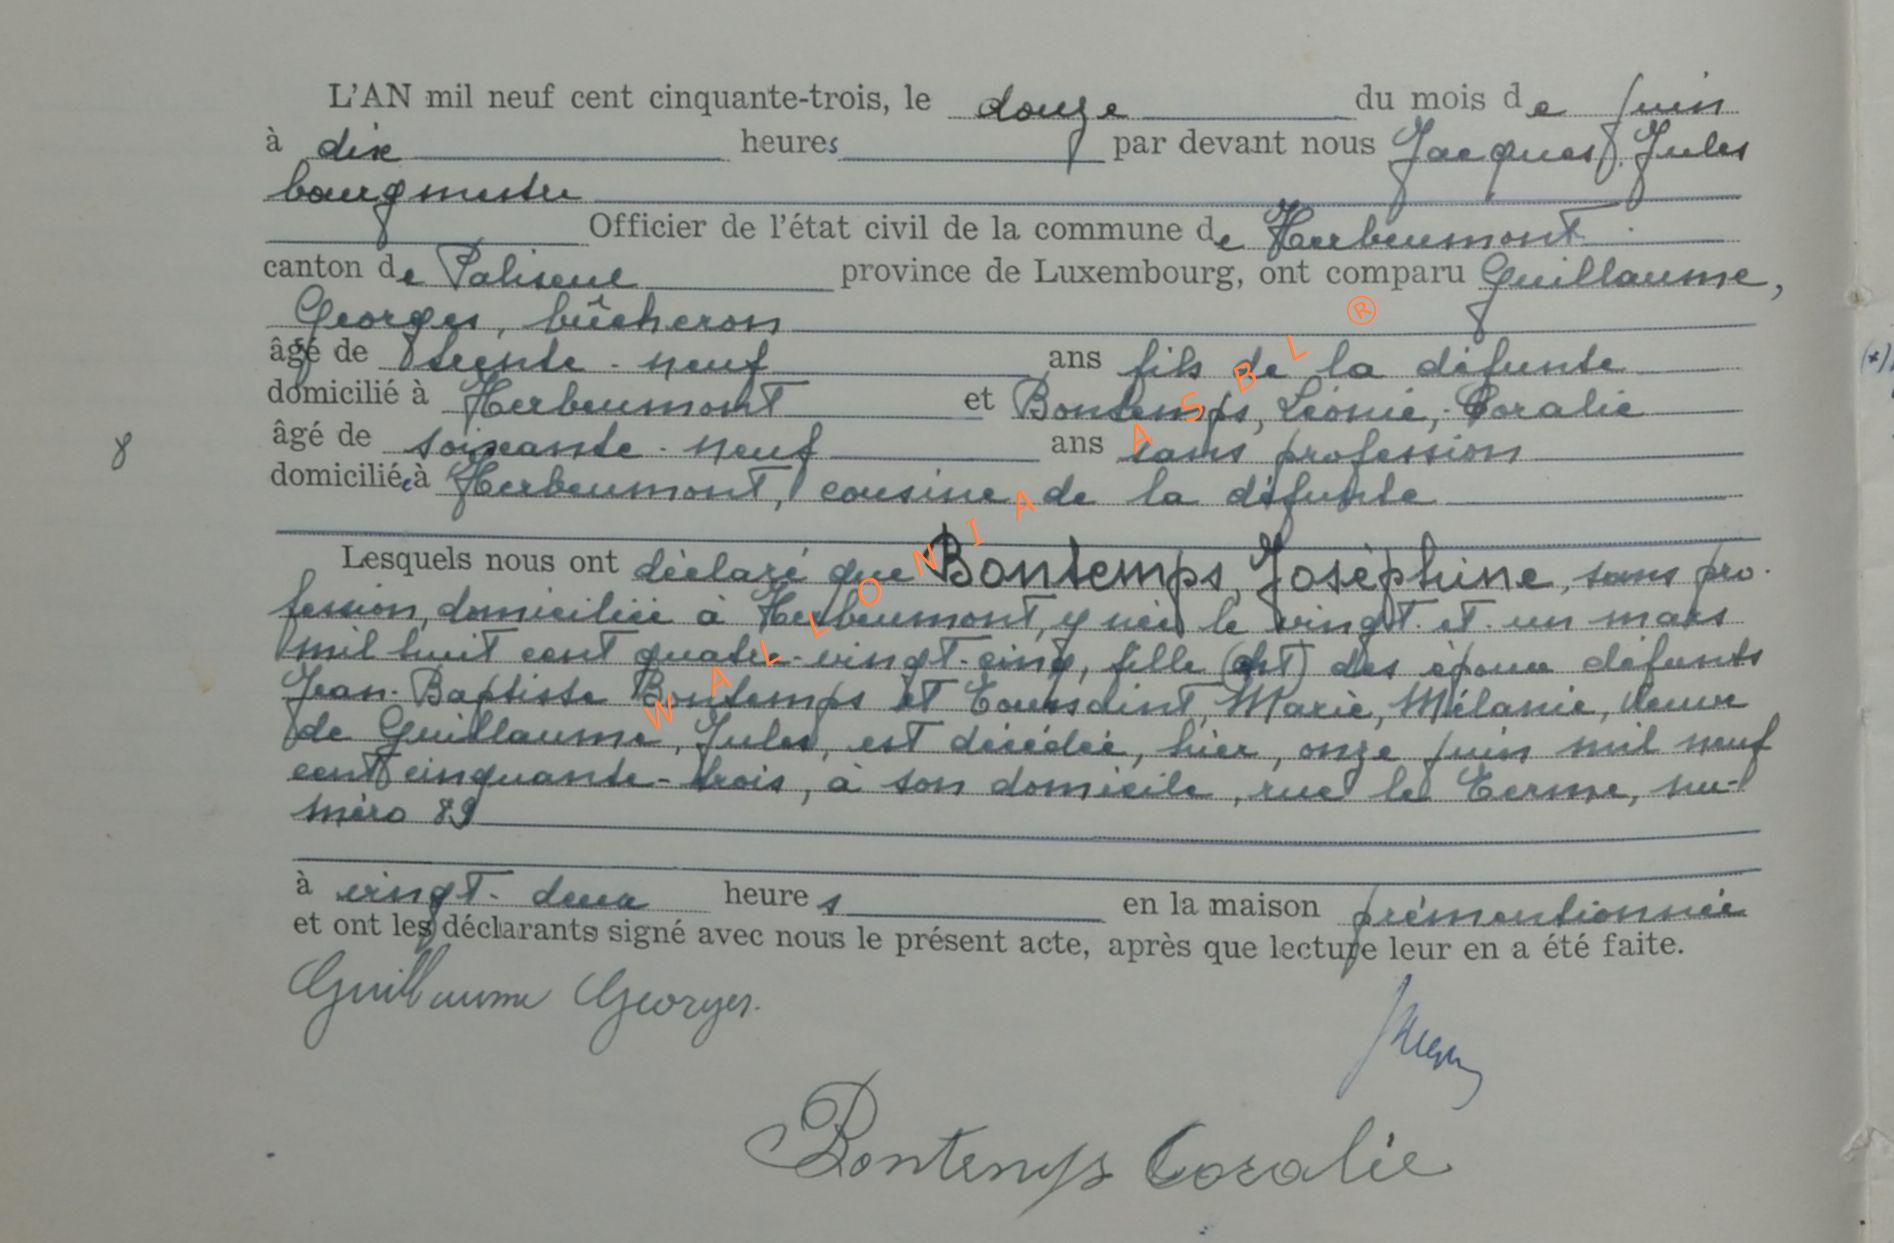 L'AN mil neuf cent cinquante-trois, le douze du mois de juin
à dix heures par devant nous Jacques, Jules
bourgmestre
Officier de l'état civil de la commune de Herbeumont
canton de Paliseul province de Luxembourg, ont comparu Guillaume,
Georges, bûcheron
âgé de trente-neuf ans fils de la défunte
domicilié à Herbeumont et Bontemps, Léonie, Coralie
8 âgé de soixante-neuf ans sans profession
domiciliée à Herbeumont, cousine de la défunte
Lesquels nous ont déclaré que Bontemps, Joséphine, sans pro-
fession, domiciliée à Herbeumont, y née le vingt-et-un mars
mil huit cent quatre-vingt-cinq, fille des époux défunts
Jean-Baptiste Bontemps et Toussaint, Marie, Mélanie, veuve
de Guillaume, Jules, est décédée, hier, onze juin mil neuf
cent cinquante-trois, à son domicile, rue le Terme, nu-
méro 89
à vingt-deux heures en la maison prémentionnée
et ont les déclarants signé avec nous le présent acte, après que lecture leur en a été faite.
Guillaume Georges.
Bontemps Coralie
WALLONIA ASBL ®
(x)